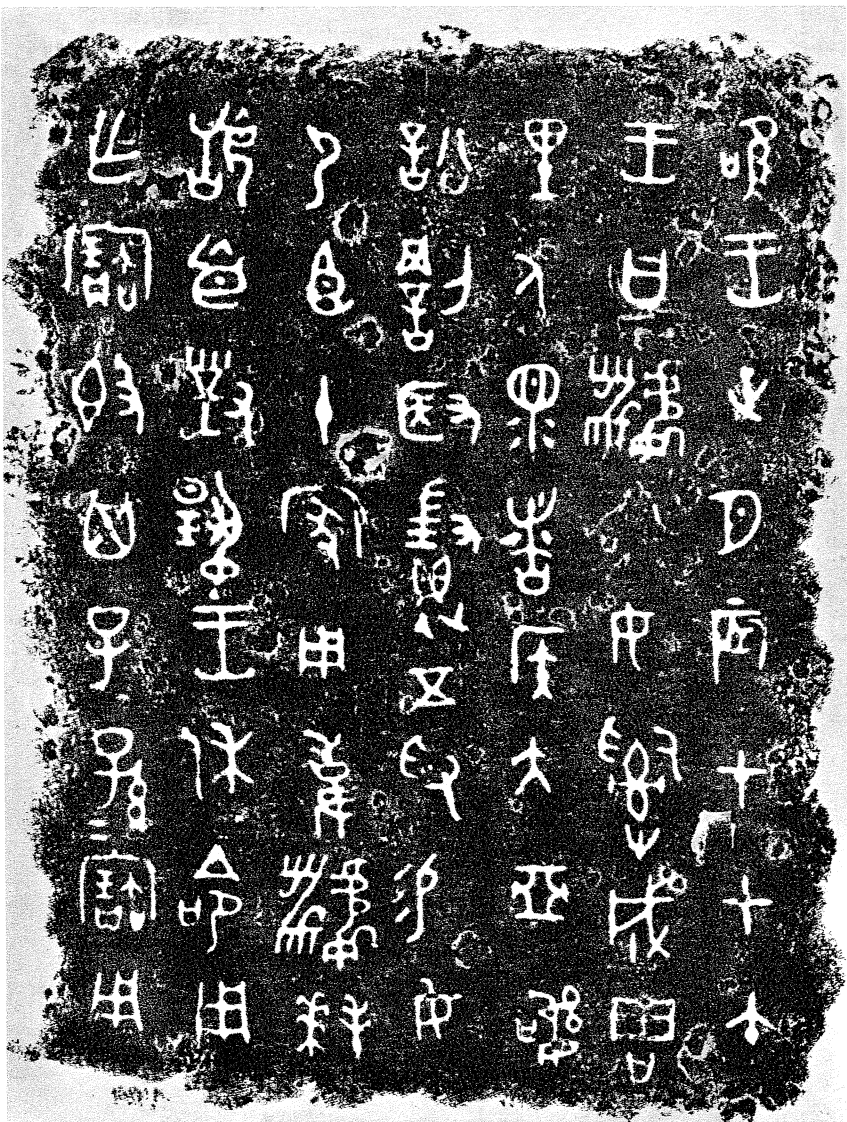 唯王正月辰才甲午
王曰𩁹命女𤔲成周
里人眔者侯大亞訊
訟罰取徵五寽易女
尸臣十家用事𩁹拜
𩒨首對揚王休命用
乍寶𣪘其子子孫寶用